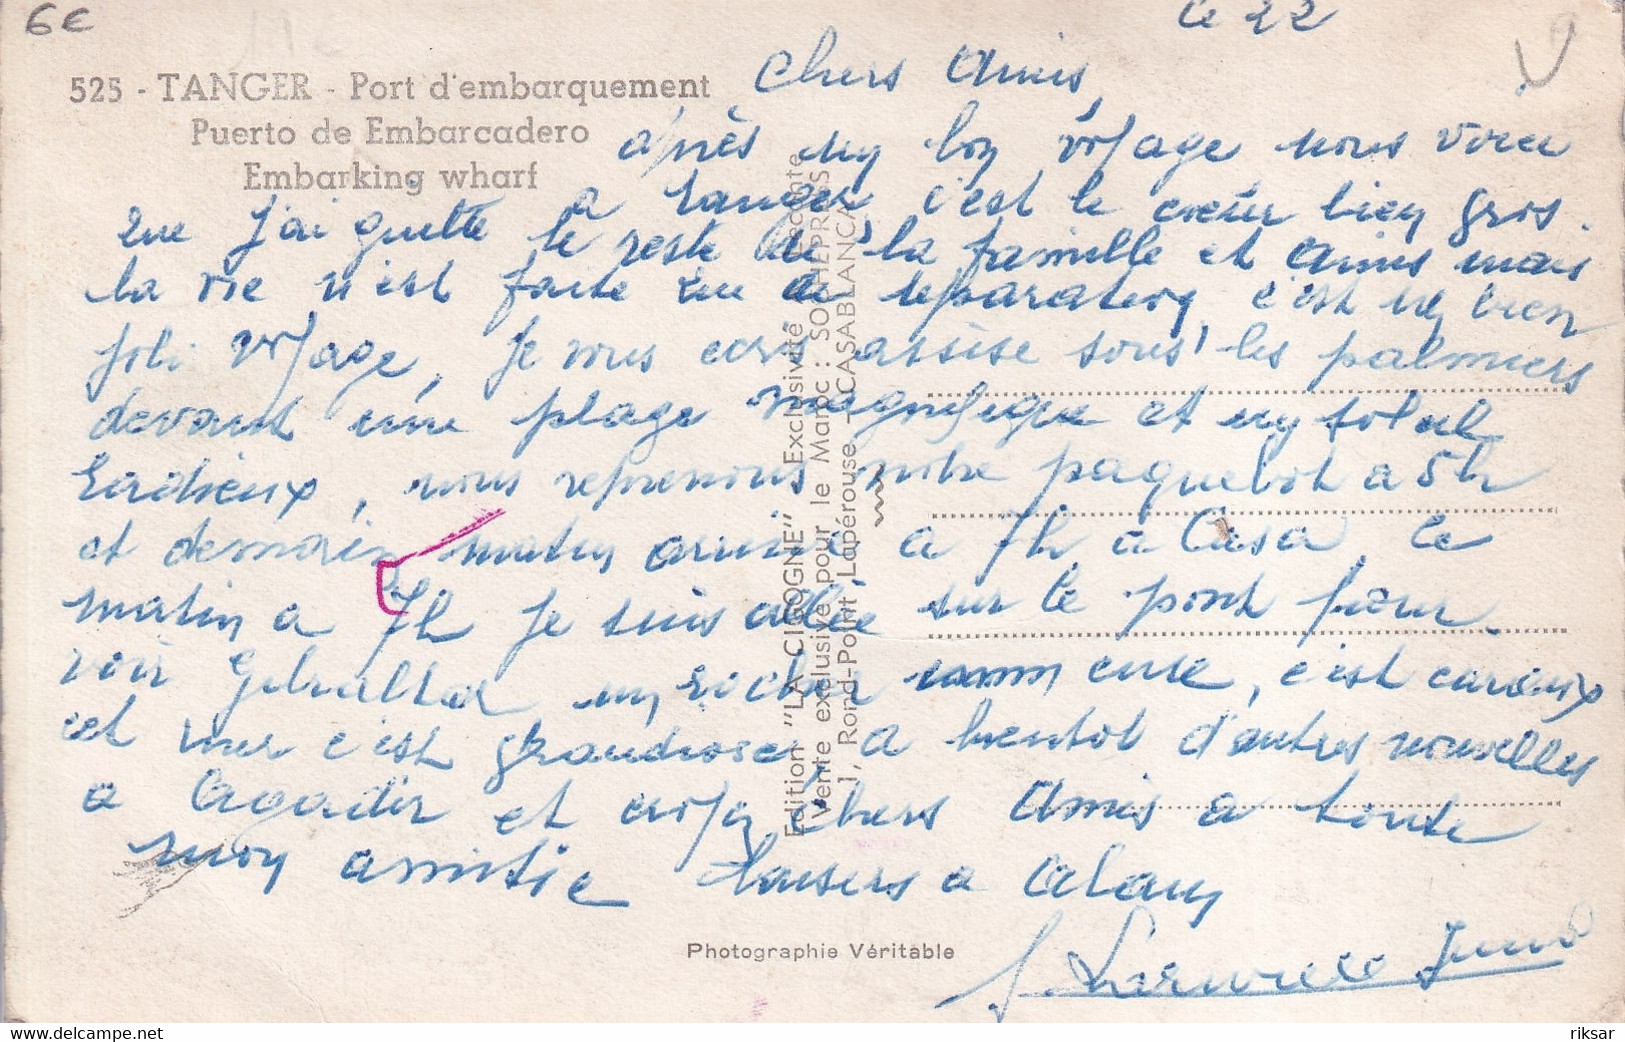 6€
le 22
525 - TANGER - Port d'embarquement
Puerto de Embarcadero
Embarking wharf
Chers Amis,
après un bon voyage nous voici
a Tanger, c'est le cœur bien gros
que j'ai quitté le reste de la famille et amis mais
la vie n'est faite que de séparation, c'est un bien
joli voyage, je vous écris assise sous les palmiers
devant une plage magnifique et un soleil
radieux, nous reprenons notre paquebot a 5h
et demain matin arrivé a 7h a Casa, ce
matin a 7h je suis allée sur le pont pour
voir Gibraltar un rocher immense, c'est curieux
et vue c'est grandiose, a bientot d'autres nouvelles
a Agadir et croyez chers Amis a toute
mon amitié baisers a Alain
Edition "LA CIGOGNE" Exclusivité Lecomte
Vente exclusive pour le Maroc : SOCHEPRESS
1, Rond-Point Lapérouse - CASABLANCA
Photographie Véritable
riksar